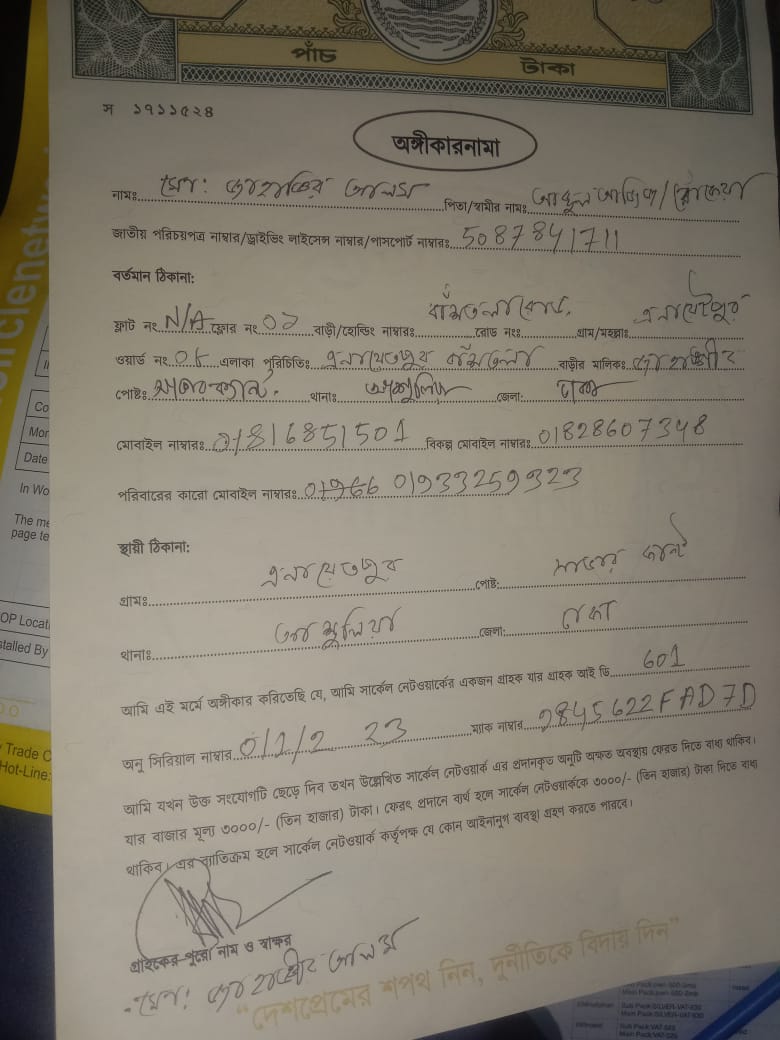 পাঁচ টাকা
স ১৭১১৫২৪
অঙ্গীকারনামা
নামঃ মোঃ জাহাঙ্গীর আলম পিতা/স্বামীর নামঃ
জাতীয় পরিচয়পত্র নাম্বার/ড্রাইভিং লাইসেন্স নাম্বার/পাসপোর্ট নাম্বারঃ 5087841711
বর্তমান ঠিকানা:
ফ্লাট নং N/A ফ্লোর নং ০১ বাড়ী/হোল্ডিং নাম্বারঃ রোড নংঃ গ্রাম/মহল্লাঃ এনায়েতপুর
ওয়ার্ড নং এলাকা পরিচিতিঃ এনায়েতপুর বাঁশতলা বাড়ীর মালিকঃ জাহাঙ্গীর
পোষ্টঃ থানাঃ আশুলিয়া জেলা: ঢাকা
মোবাইল নাম্বারঃ 01816851501 বিকল্প মোবাইল নাম্বারঃ 01828607348
পরিবারের কারো মোবাইল নাম্বারঃ 01933259323
স্থায়ী ঠিকানা:
গ্রামঃ এনায়েতপুর পোষ্ট:
থানাঃ আশুলিয়া জেলা: ঢাকা
আমি এই মর্মে অঙ্গীকার করিতেছি যে, আমি সার্কেল নেটওয়ার্কের একজন গ্রাহক যার গ্রাহক আই ডি 601
অনু সিরিয়াল নাম্বার ম্যাক নাম্বার 9845622FAD7D
আমি যখন উক্ত সংযোগটি ছেড়ে দিব তখন উল্লেখিত সার্কেল নেটওয়ার্ক এর প্রদানকৃত অনুটি অক্ষত অবস্থায় ফেরত দিতে বাধ্য থাকিব।
যার বাজার মূল্য ৩০০০/- (তিন হাজার) টাকা। ফেরৎ প্রদানে ব্যর্থ হলে সার্কেল নেটওয়ার্ককে ৩০০০/- (তিন হাজার) টাকা দিতে বাধ্য
থাকিব। এর ব্যতিক্রম হলে সার্কেল নেটওয়ার্ক কর্তৃপক্ষ যে কোন আইনানুগ ব্যবস্থা গ্রহণ করতে পারবে।
গ্রাহকের পুরো নাম ও স্বাক্ষর
মোঃ জাহাঙ্গীর আলম
"দেশপ্রেমের শপথ নিন, দুর্নীতিকে বিদায় দিন"
Co
Mor
Date
In Wo
The me
page te
OP Locati
stalled By
Trade C
Hot-Line: